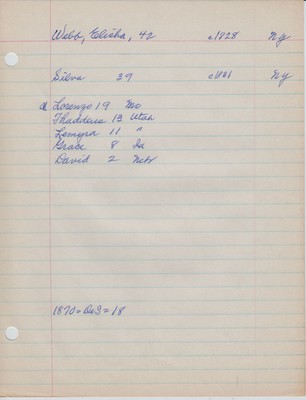 Webb, Elisha, 42 c1828 NY
Silva 39 c1831 NY
Lorenzo 19 Mo
Thaddeus 13 Utah
Lemyra 11 "
Grace 8 Ia
David 2 Nebr
1870 = DeS = 18